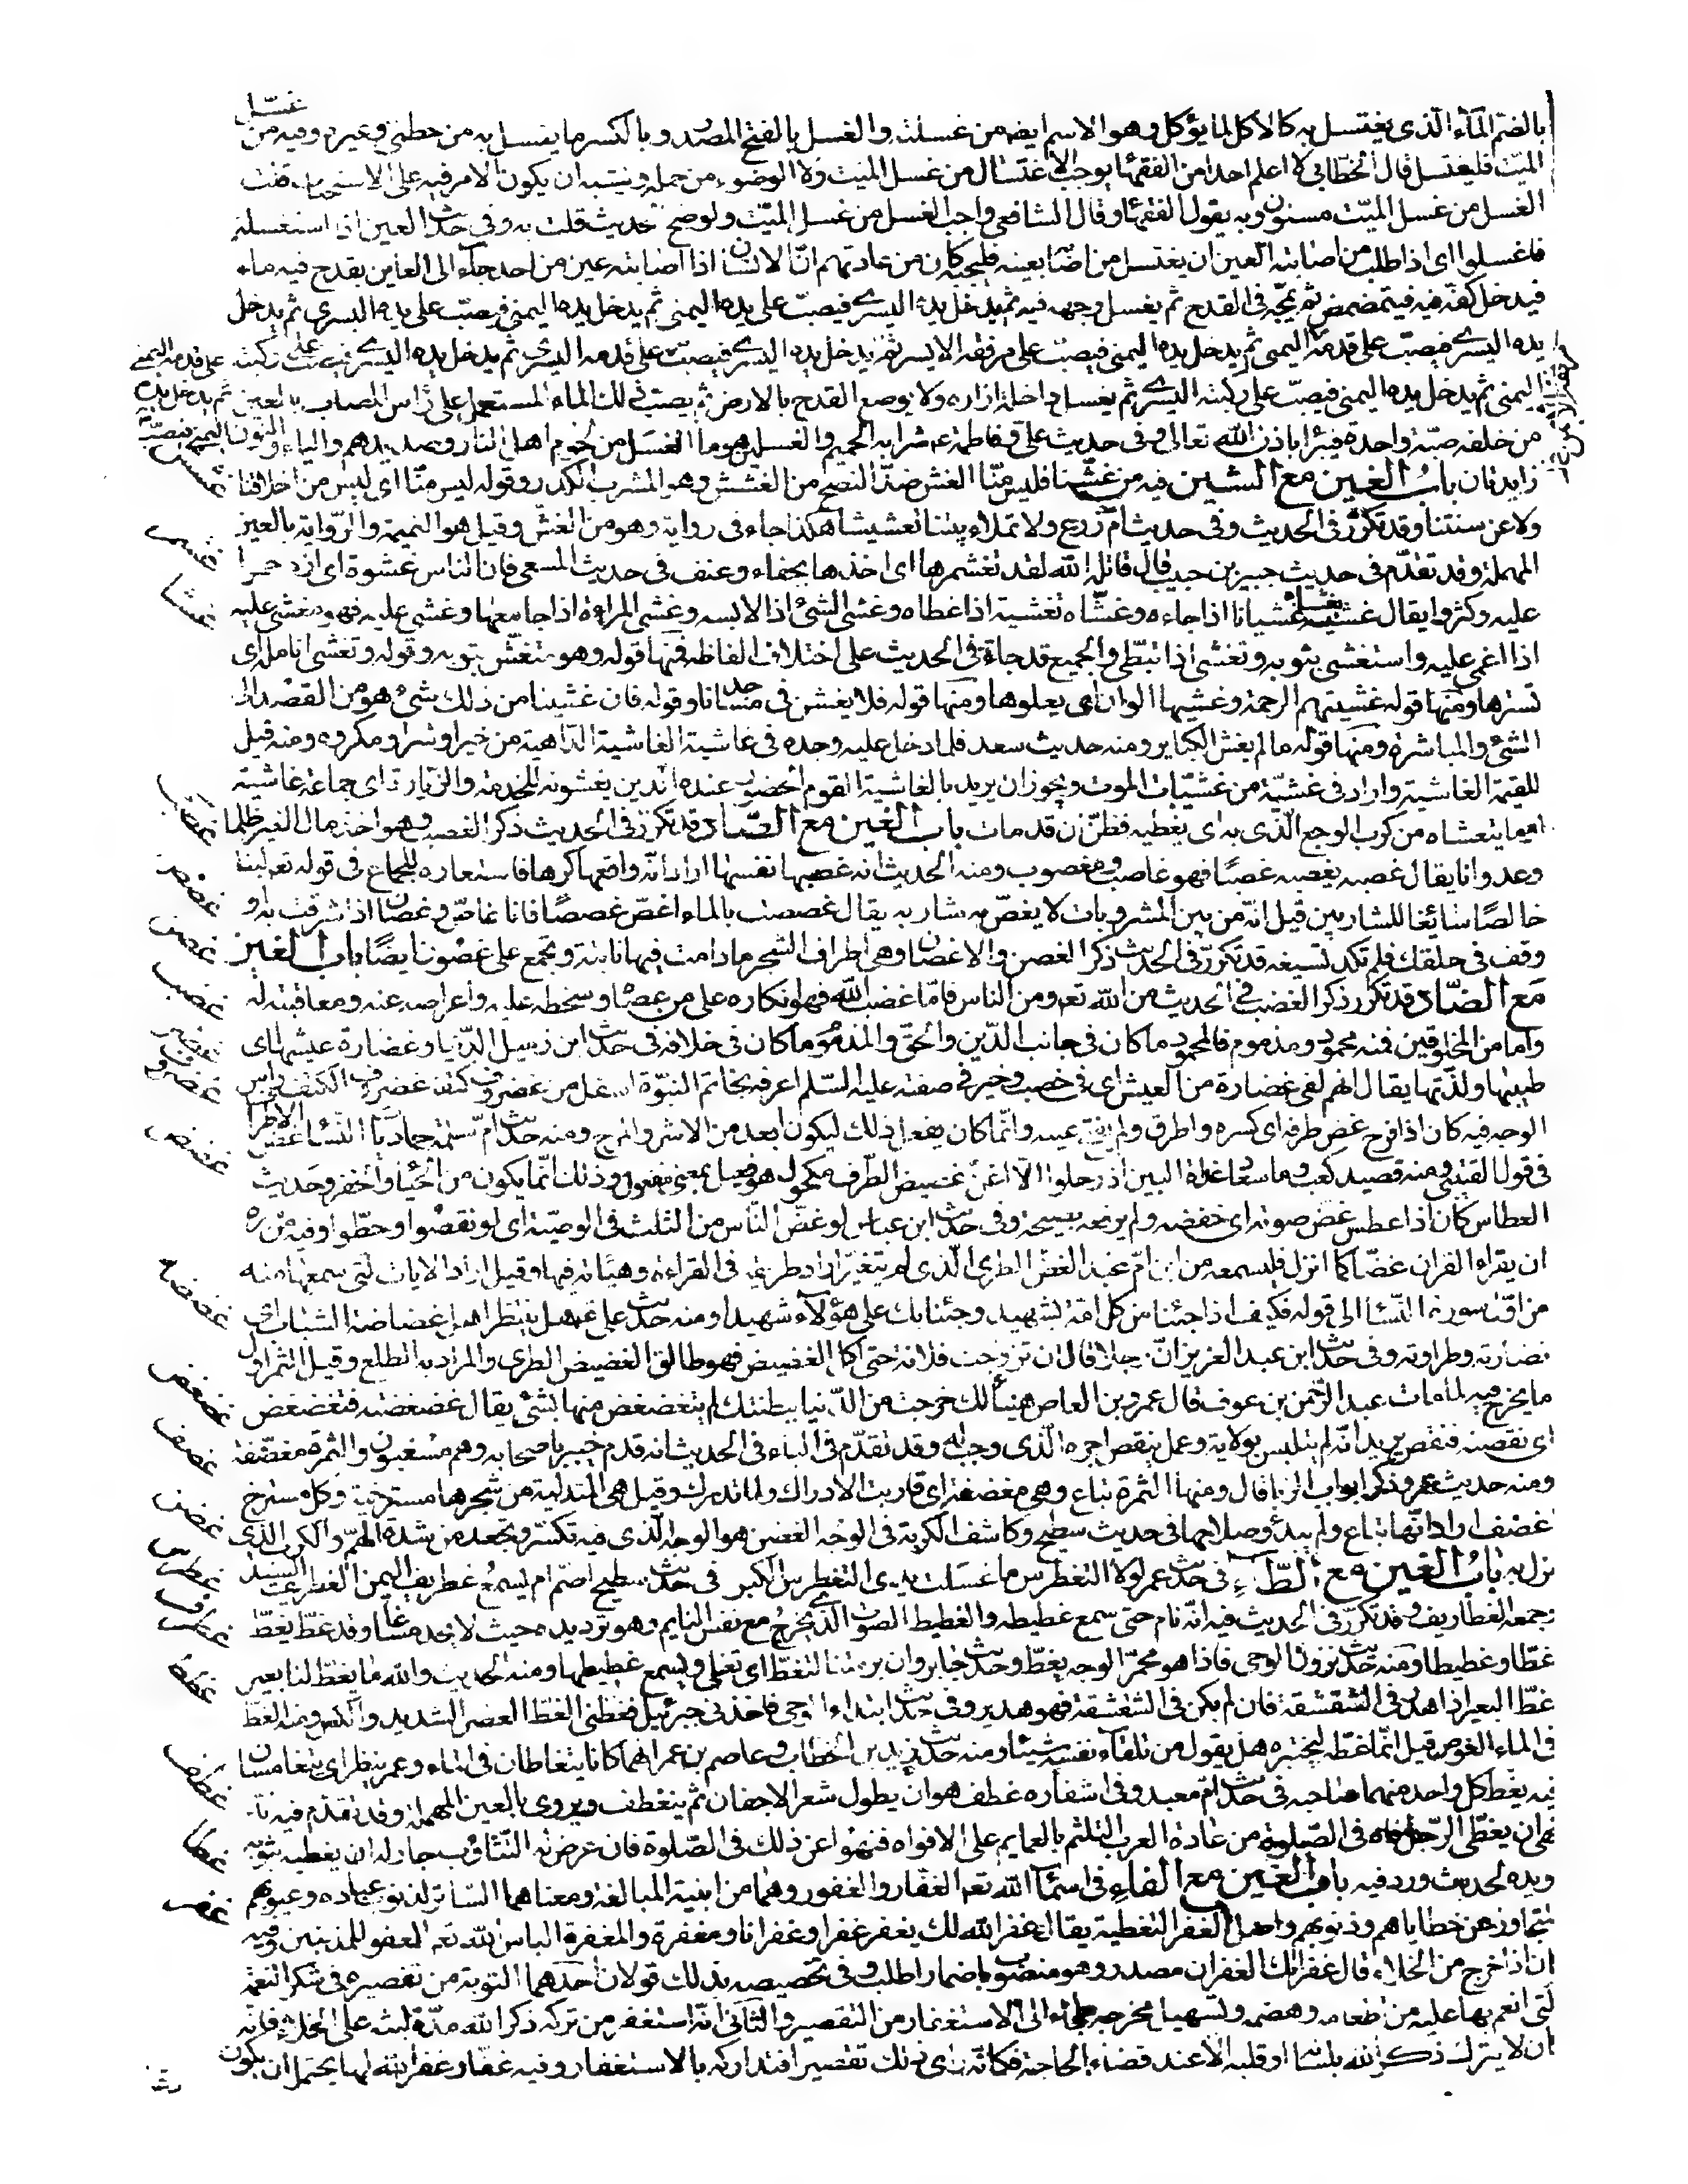 غسل
بالضم الماء الذى يغتسل به كالاكل لما يؤكل وهو الاسم ايضه من غسلته والغسل بالفتح المصدر وبالكسر ما يغسل به من خطمى وغيره وفيه من
الميّت فليغتسل قال الخطابى لا اعلم احدا من الفقهاء يوجب الاغتسال من غسل الميت ولا الوضوء من حمله ويشبه ان يكون الامر فيه على الاستحباب قلت
الغسل من غسل الميّت مسنون وبه يقول الفقهاء وقال الشافعى واجب الغسل من غسل الميّت ولو صح حديث قلت به وفى حديث العين اذا استغسلتم
فاغسلوا اى اذا طلب من اصابته العين ان يغتسل من اصابه بعينه فليجبه كان من عادتهم انّ الانسان اذا اصابته عين من احد جاء الى العاين بقدح فيه ماء
فيدخل كفّه فيه فيتمضمض ثم يمجّه فى القدح ثم يغسل وجهه فيه ثم يدخل يده اليسرى فيصبّ على يده اليمنى ثم يدخل يده اليمنى فيصبّ على يده اليسرى ثم يدخل
يده اليسرى فيصبّ على مرفقه اليمنى ثم يدخل يده اليمنى فيصبّ على مرفقه الايسر ثم يدخل يده اليسرى فيصبّ على قدمه اليمنى
اليمنى ثم يدخل يده اليمنى فيصبّ على ركبته اليسرى ثم يغسل داخلة ازاره ولا يوضع القدح بالارض ثم يصبّ ذلك الماء المستعمل على راس المصاب بالعين
من خلفه صبّة واحدة فيبرأ باذن الله تعالى وفى حديث على وفاطمة شرابه الحميم والغسلين هو ما انغسل من لحوم اهل النار وصديدهم والياء والنون
زايدتان باب الغين مع الشين فيه من غشّنا فليس منّا الغش ضدّ النصح من الغشش وهو المشرب الكدر وقوله ليس منّا اى ليس من اخلاقنا
ولا عن سنتنا وقد تكرّر فى الحديث وفى حديث ام زرع ولا تملاء بيتنا تغشيشا هكذا جاء فى رواية وهو من الغش وقيل هو النميمة والرّواية بالعين
المهملة وقد تقدّم فى حديث جبير بن حبيب قال قاتله الله لقد تغشمرها اى اخذها بجفاء وعنف فى حديث المسعى فان الناس غشوه اى ازدحموا
عليه وكثروا يقال غشيه يغشاه غشيانا اذا جاءه وغشّاه تغشية اذا غطاه وغشى الشىء اذا لابسه وغشى المراءة اذا جامعها وغشى عليه فهو مغشى عليه
اذا اغمى عليه واستغشى بثوبه وتغشى اذا تغطّى والجميع قد جاء فى الحديث على اختلاف الفاظه فمنها قوله وهو متغشّ بثوبه وقوله وتغشى انامله اى
تسترها ومنها قوله غشيتهم الرحمة وغشيها الوان اى يعلوها ومنها قوله فلا يغشنا فى مساجدنا وقوله فان غشينا من ذلك شىء هو من القصد الى
الشئ والمباشرة ومنها قوله ما لم يغش الكبائر ومنه حديث سعد فلما دخل عليه وجده فى غاشية الغاشية الداهية من خير او شر او مكروه ومنه قيل
للقيمة الغاشية واراد فى غشيّة من غشيّات الموت ويجوز ان يريد بالغاشية القوم الحضور عنده الذين يغشونه للخدمة والزيارة اى جماعة غاشية
او ما يتغشاه من كرب الوجع الّذى به اى يغطيه فظنّ ان قد مات باب الغين مع الصاد قد تكرّر فى الحديث ذكر الغصب وهو اخذ مال الغير ظلما
وعدوانا يقال غصبه يغصبه غصبًا فهو غاصب ومغصوب ومنه الحديث انه غصبها نفسها اراد انّه واقعها كرها فاستعاره للجماع فى قوله تعه لبنا
خالصًا سائغا للشاربين قيل انّه من بين المشروبات لا يغصّ به شاربه يقال غصصت بالماء اغصّ غصصًا فانا غاصّ وغصّان اذا شرقت به او
وقف فى حلقك فلم تكد تسيغه قد تكرّر فى الحديث ذكر الغصن والاغصان وهى اطراف الشجر ما دامت فيها نابتة وتجمع على غصون ايضًا باب الغين
مع الضاد قد تكرّر ذكر الغضب فى الحديث من الله تعه ومن الناس فامّا غضب الله فهو انكاره على من عصاه وسخطه عليه واعراضه عنه ومعاقبته له
وامّا من المخلوقين فمنه محمود ومذموم فالمحمود ما كان فى جانب الدّين والحقّ والمذموم ما كان فى خلافه فى حديث ابن زمل الدّنيا وغضارة عيشها اى
طيبها ولذّتها يقال انهم لفى غضارة من العيش اى فى خصب وخير فى صفته عليه السّلم اعرفه بخاتم النبوّة اسفل من غضروف كتفه غضروف الكتف راس
الوحه فيه كان اذا فرح غض طرفه اى كسره واطرق ولم يفتح عينه وانّما كان يفعل ذلك ليكون ابعد من الاشر والمرح ومنه حديث امّ سلمة حماديات النساء غض الاطراف
فى قول القتيبى ومنه قصيد كعب وما سعاد غداة البين اذ رحلوا الّا اغنّ غضيض الطّرف مكحول هو فعيل بمعنى مفعول وذلك انّما يكون من الحياء والخفر وحديث
العطاس كان اذا عطس غضّ صوته اى خفضه ولم يرفعه بصيحة وفى حديث ابن عباس لو غضّ النّاس من الثلث فى الوصيّة اى لو نقصوا وحطّوا وفيه من سره
ان يقراء القران غضّا كما انزل فليسمعه من ابن امّ عبد الغضّ الطرى الّذى لم يتغيّر اراد طريقه فى القراءة وهيئاته فيها وقيل اراد الايات التى سمعها منه
من اوّل سورة النّساء الى قوله فكيف اذا جئنا من كل امّة بشهيد وجئنا بك على هؤلاء شهيدا ومنه حديث على هل ينتظر اهل غضاضة الشباب اى
نضارته وطراوته وفى حديث ابن عبد العزيز انّ رجلا قال ان تزوجت فلانة حتى آكل الغضيض فهو طالق الغضيض الطرى والمراد به الطلع وقيل الثمر اول
ما يخرج فيه لمّا مات عبد الرّحمن بن عوف قال عمرو بن العاص هنيئا لك خرجت من الدّنيا ببطنتك لم يتغضغض منها بشىء يقال غضغضته فتغضغض
اى نقصته فنقص يريد انّه لم يتلبس بولاية وعمل ينقص اجره الّذى وجب له وقد تقدّم فى الباء فى الحديث انه قدم خيبر باصحابه وهم مسغبون والثمرة مغضّفة
ومنه حديث عمر وذكر ابواب الربا قال ومنها الثمرة تباع وهى مغضفة اى قاربت الادراك ولما تدرك وقيل هى المتدلية من شجرها مسترخية وكل مسترخ
غضف اراد انّها تباع ولم يبد صلاحها فى حديث سطيح وكاشف الكربة فى الوجه الغضن هو الوجه الّذى فيه تكسّر وتجعد من شدة الهمّ والكرب الّذى
نزل به باب الغين مع الطّاء فى حديث عمر لولا التغطرس ما غسلت يدى التغطرس الكبر فى حديث سطيح اصمّ ام يسمع غطريف اليمن الغطريف السّيّد
وجمعه الغطاريف وقد تكرّر فى الحديث فيه انّه نام حتى سمع غطيطه والغطيط الصوت الّذى يخرج مع نفس النايم وهو ترديده حيث لا يجد مساغا وقد غطّ يغطّ
غطّا وغطيطا ومنه حديث نزول الوحى فاذا هو محمرّ الوجه يغطّ وحديث جابر وان برمتنا لتغطّ اى تغلى ويسمع غطيطها ومنه الحديث والله ما يغطّ لنا بعير
غطّ البعير اذا هدر فى الشقشقة فان لم يكن فى الشقشقة فهو هدير وفى حديث ابتداء الوحى فاخذنى جبرئيل فغطّنى الغطّ العصر الشديد والكبس ومنه الغطّ
فى الماء الغوص قيل انّما غطّه ليختبره هل يقول من تلقاء نفسه شيئا ومنه حديث زيد بن الخطاب وعاصم بن عمر انهما كانا يتغاطان فى الماء وعمر ينظر اى يتغامسان
فيه يغطّ كل واحد منهما صاحبه فى حديث امّ معبد وفى اشفاره غطف هو ان يطول شعر الاجفان ثم ينعطف ويروى بالعين المهملة وقد تقدّم فيه
نهى ان يغطّى الرّجل فاه فى الصلوة من عادة العرب التلثم بالعمايم على الافواه فنهوا عن ذلك فى الصّلوة فان عرض له التّثاؤب جاز له ان يغطيه بثوبه
ويده لحديث ورد فيه باب الغين مع الفاء فى اسماء الله تعه الغفّار والغفور وهما من ابنية المبالغة ومعناهما السّاتر لذنوب عباده وعيوبهم
المتجاوز عن خطاياهم وذنوبهم واصل الغفر التغطية يقال غفر الله لك يغفر غفرا وغفرانا ومغفرة والمغفرة الباس الله تعه العفو للمذنبين وفيه
ان اذا خرج من الخلاء قال غفرانك الغفران مصدر وهو منصوب باضمار اطلب وفى تخصيصه بذلك قولان احدهما التوبة من تقصيره فى شكر النعمة
لتى انعم بها عليه من اطعامه وهضمه وتسهيل مخرجه فلجاء الى الاستغفار من التقصير والثانى انّه استغفر من تركه ذكر الله مدّة لبثه على الخلاء فانّه
ان لا يترك ذكر الله بلسانه او قلبه الّا عند قضاء الحاجة فكانّه راى ذلك تقصيرا فتداركه بالاستغفار وفيه غفار غفر الله لها يحتمل ان يكون
غشش
غشم
غشا
غصب
غصص
غصن
غضب
غضر
غضرف
غضض
غضغض
غضف
غضن
غطرس
غطرف
غطط
غطف
غطا
غفر